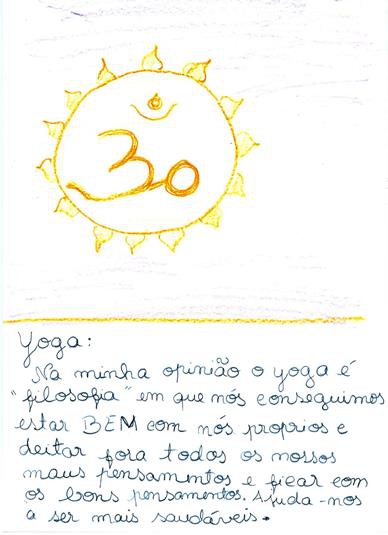 Yoga:
Na minha opinião o yoga é
"filosofia" em que nós conseguimos
estar BEM com nós proprios e
deitar fora todos os nossos
maus pensamentos e ficar com
os bons pensamentos. Ajuda-nos
a ser mais saudáveis.